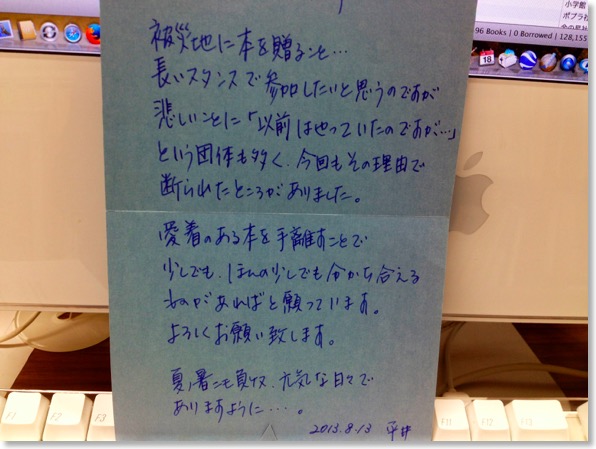 小学館
ポプラ社
96 Books | 0 Borrowed | 128,155
18
被災地に本を贈ること…
長いスタンスで参加したいと思うのですが
悲しいことに「以前はやっていたのですが…」
という団体も多く、今回もその理由で
断られたところがありました。
愛着のある本を手離すことで
少しでも、ほんの少しでも分かち合える
ものがあればと願っています。
よろしくお願い致します。
夏ノ暑ニも負けヌ、元気な日々で
ありますように・・・。
2013.8.13 平井
F1
F2
F3
F11
F12